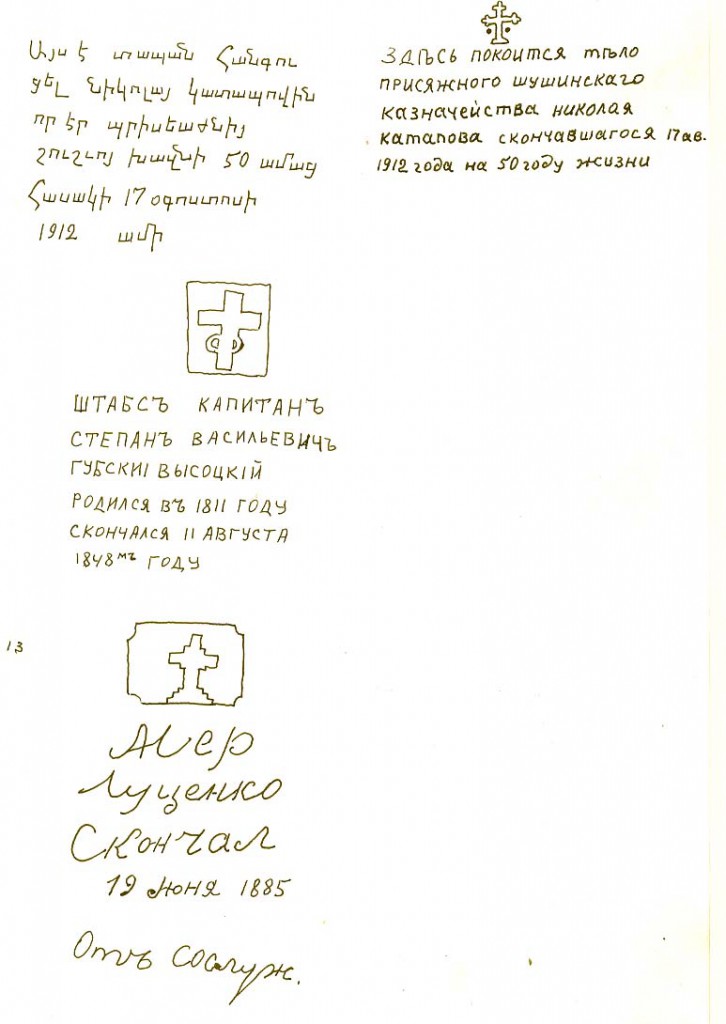 Այս է տապան Հանգու
ցել Նիկոլայ Կատապովին
որ էր պրիսեաժնիյ
շուշւոյ խազնի 50 ամաց
Հասակի 17 օգոստոսի
1912 ամի
ЗДѢСЬ ПОКОИТСЯ ТѢЛО
ПРИСЯЖНОГО ШУШИНСКАГО
КАЗНАЧЕЙСТВА НИКОЛАЯ
КАТАПОВА СКОНЧАВШАГОСЯ 17 АВ.
1912 ГОДА НА 50 ГОДУ ЖИЗНИ
ШТАБСЪ КАПИТАНЪ
СТЕПАНЪ ВАСИЛЬЕВИЧЪ
ГУБСКИІ ВЫСОЦКІЙ
РОДИЛСЯ ВЪ 1811 ГОДУ
СКОНЧАЛСЯ 11 АВГУСТА
1848МЪ ГОДУ
13
Луценко
Скончал
19 Июня 1885
Отъ Сослуж.